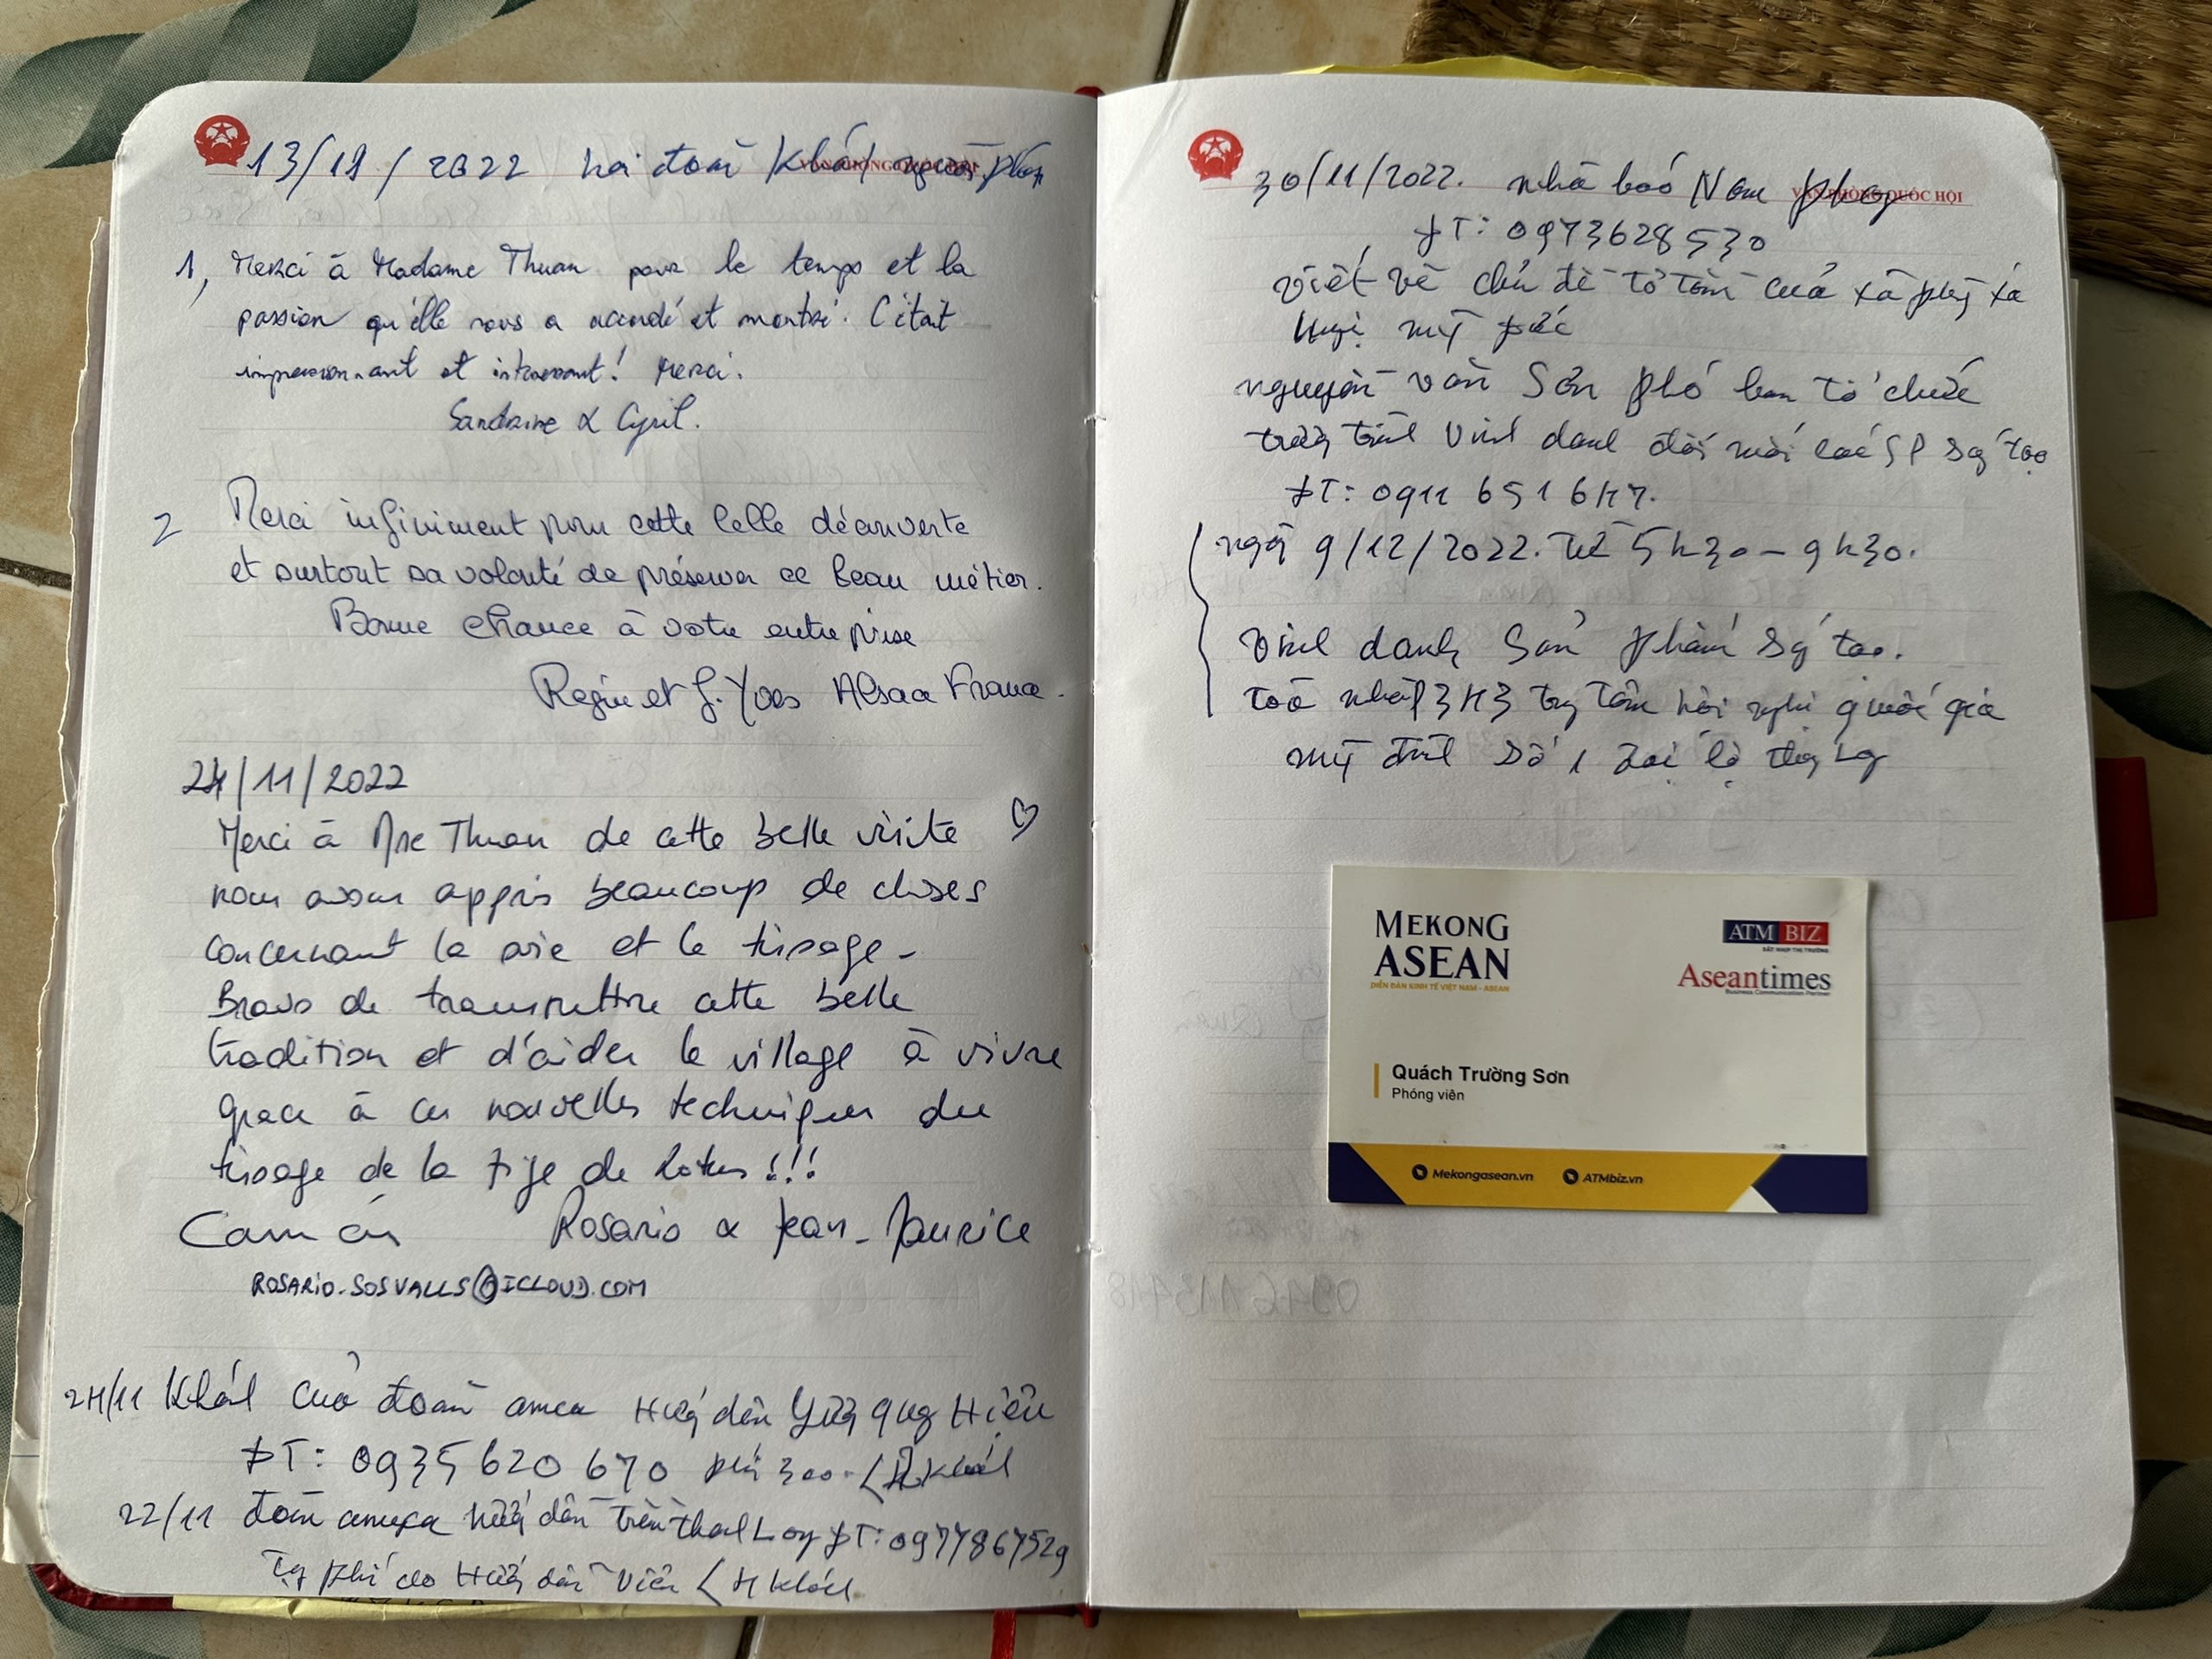 13/11/2022 hai đoàn Khách người Pháp
VĂN PHÒNG QUỐC HỘI
1, Merci à Madame Thuan pour le temps et la
passion qu'elle nous a accordé et montré. C'était
impressionnant et intéressant! Merci.
Sandrine & Cyril.
2 Merci infiniment pour cette belle découverte
et surtout sa volonté de préserver ce beau métier.
Bonne chance à votre entreprise
Regine et J. Yves Alsace France.
24/11/2022
Merci à Mme Thuan de cette belle visite ♡
nous avons appris beaucoup de choses
concernant la soie et le tissage -
Bravo de transmettre cette belle
tradition et d'aider le village à vivre
grace à ces nouvelles techniques du
tissage de la tige de Lotus!!!
Cam ơn Rosario & Jean-Maurice
ROSARIO.SOSVALLS@ICLOUD.COM
24/11 Khách của đoàn amea Hướng dẫn Quang Hiếu
ĐT: 0935 620 670 phí 300 - (4 khách
22/11 đoàn hướng dẫn Trần ĐT: 0977867529
phí cho Hướng dẫn viên (4 khách
30/11/2022. nhà báo Nam phong
VĂN PHÒNG QUỐC HỘI
ĐT: 0973628530
viết về chủ đề tơ tằm của xã phùng xá
Huyện mỹ Đức
nguyễn văn Sơn phó ban tổ chức
trương trình vinh danh đổi mới các SP sáng tạo
ĐT: 0911 651 647.
ngày 9/12/2022. từ 5h30 - 9h30.
vinh danh sản phẩm sáng tạo.
toà nhà trung tâm hội nghị quốc gia
mỹ đình số 1 đại lộ thăng long
MEKONG
ASEAN
DIỄN ĐÀN KINH TẾ VIỆT NAM - ASEAN
ATM BIZ
SÁT NHỊP THỊ TRƯỜNG
Aseantimes
Business Communication Partner
Quách Trường Sơn
Phóng viên
Mekongasean.vn ATMbiz.vn